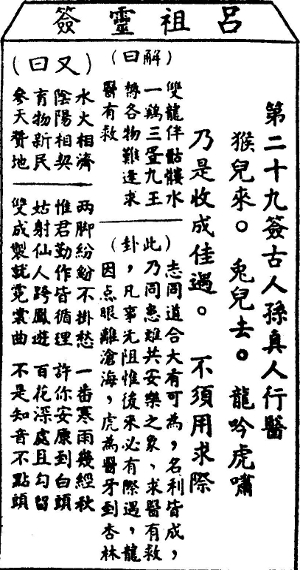 呂祖靈簽
第二十九簽古人孫真人行醫
猴兒來。兔兒去。龍吟虎嘯
乃是收成佳過。不須用求際
(解曰)
雙龍伴骷髏水
一鷄三蛋九王
博各物難逢求
醫有救
(此卦)
志同道合大有可為,名利皆成,
乃同患難共安樂之象、求醫有救
,凡事先阻惟後來必有際遇,龍
因点眼離滄海,虎為醫牙到杏林
(又曰)
水火相濟
陰陽相契
育物新民
參天贊地
兩脚紛紛不掛愁 一番寒雨幾經秋
惟君勤作皆循理 許你安康到白頭
姑射仙人跨鳳遊 百花深處且勾留
雙成製就霓裳曲 不是知音不點頭